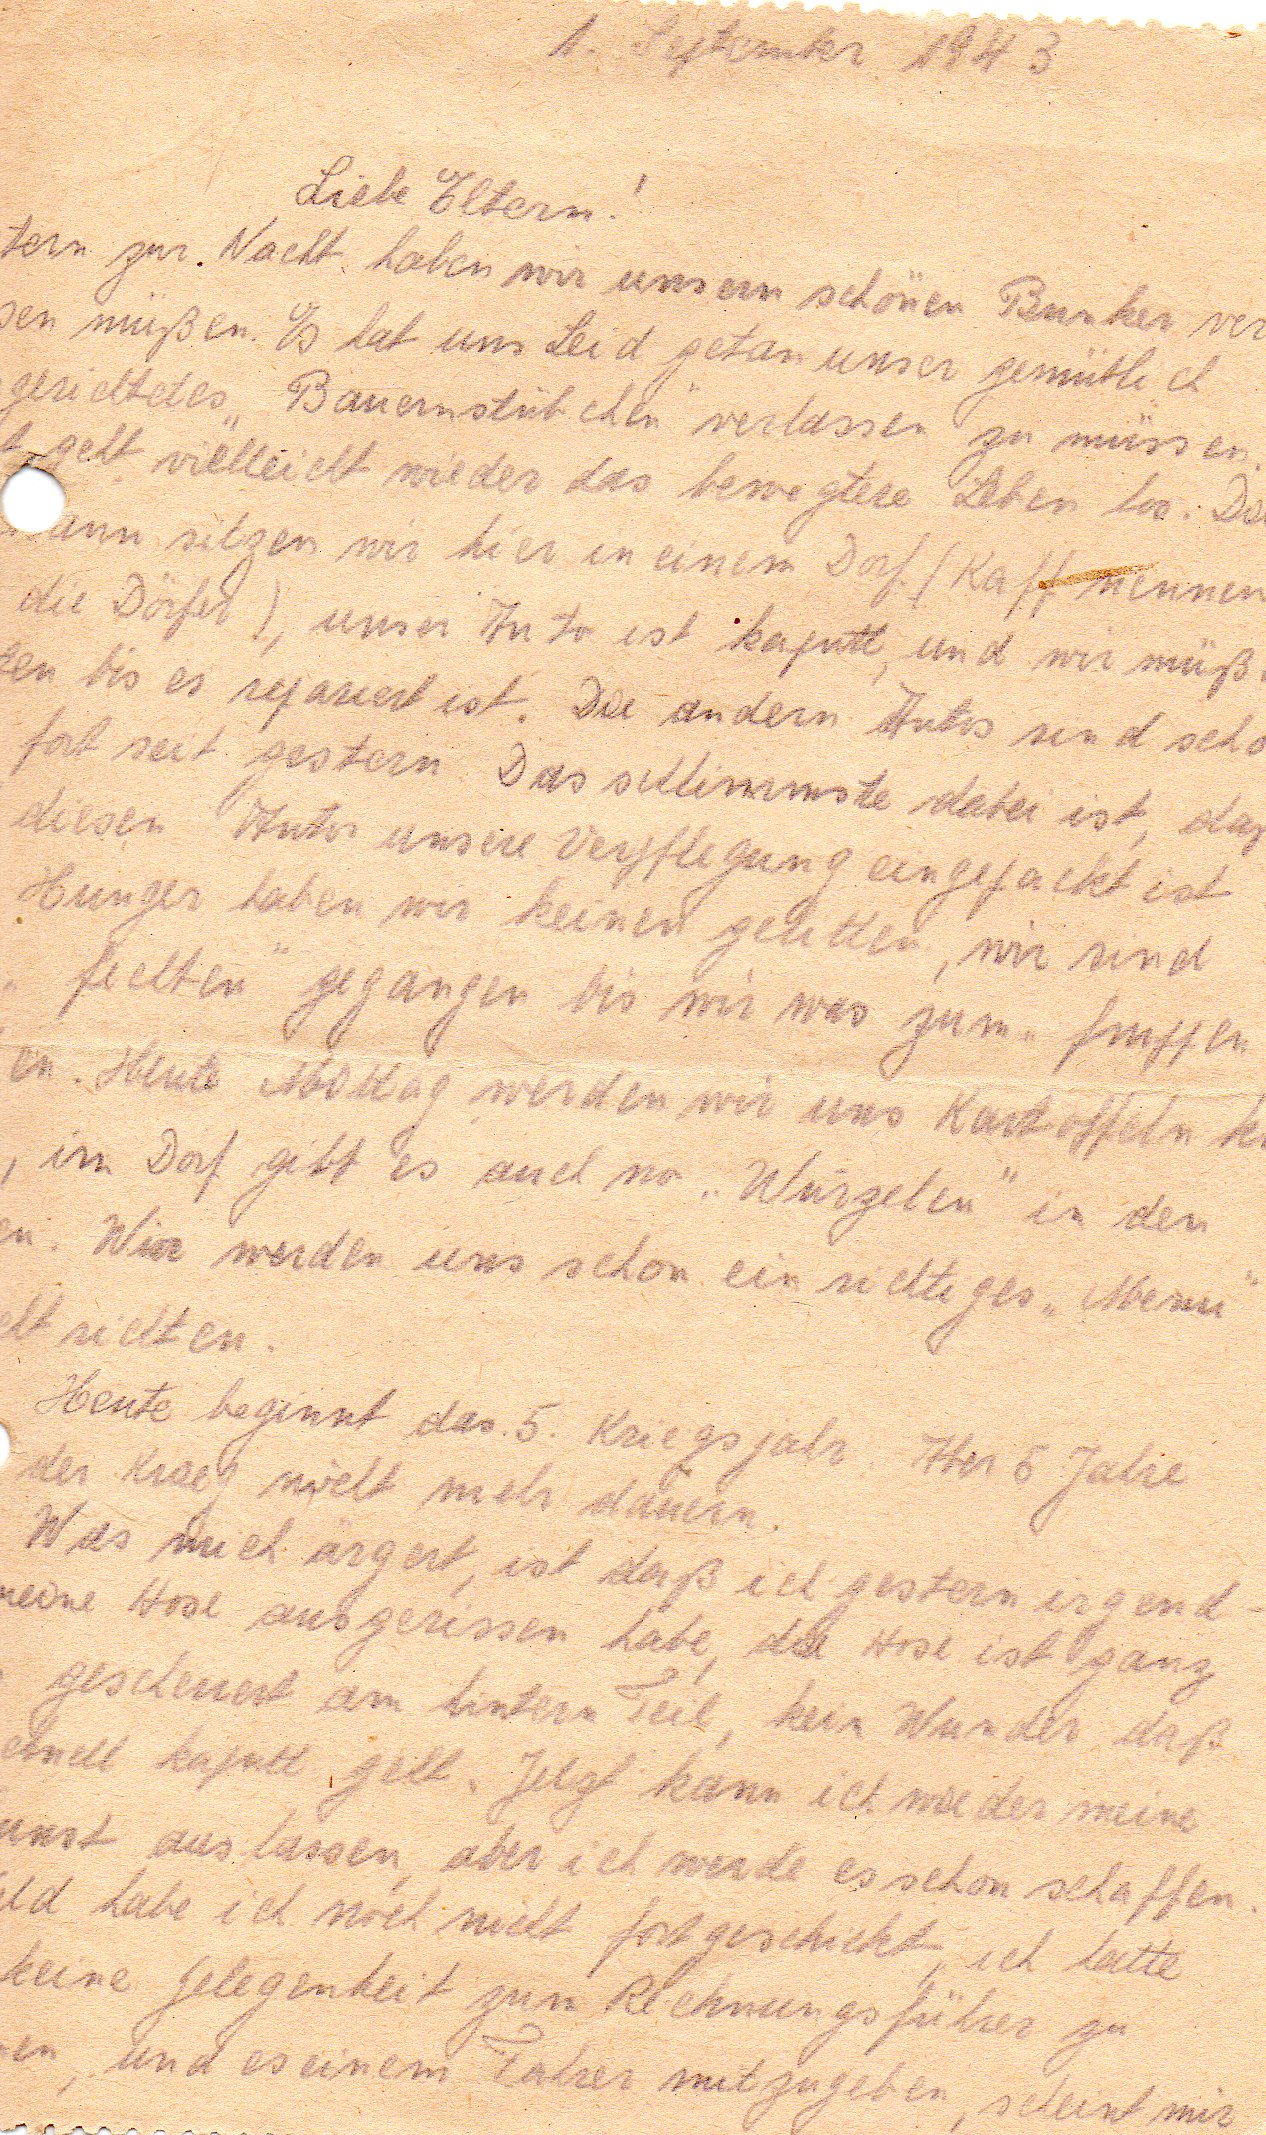 1. September 1943
Liebe Eltern!
tern zur Nacht haben wir unsern schönen Bunker ver
sen müßen. Es hat uns Leid getan unser gemütlich
gerichtetes „Bauernstübchen" verlassen zu müssen.
geht vielleicht wieder das bewegtere Leben los.
ann sitzen wir hier in einem Dorf (Kaff nennen
die Dörfer), unser Auto ist kaputt, und wir müß
ten bis es repariert ist. Die andern Autos sind scho
fort seit gestern. Das schlimmste dabei ist, daß
diesen Autos unsere Verpflegung eingepackt ist
Hunger haben wir keinen gelitten, wir sind
„fechten" gegangen bis wir was zum „
en. Heute Mittag werden wir uns Kartoffeln
, im Dorf gibt es auch no „Wurzeln" in den
en. Wir werden uns schon ein richtiges „Menu"
richten.
Heute beginnt das 5. Kriegsjahr. Aber 5 Jahre
der Krieg nicht mehr dauern.
Was mich ärgert, ist daß ich gestern irgend-
meine Hose ausgerissen habe, die Hose ist ganz
gescheuert am hintern Teil, kein Wunder daß
schnell kaputt geht. Jetzt kann ich wieder meine
unst auslassen, aber ich werde es schon schaffen.
eld habe ich noch nicht fortgeschickt, ich hatte
keine Gelegenheit zum Rechnungsführer zu
men, und es einem Fahrer mitzugeben, scheint mir